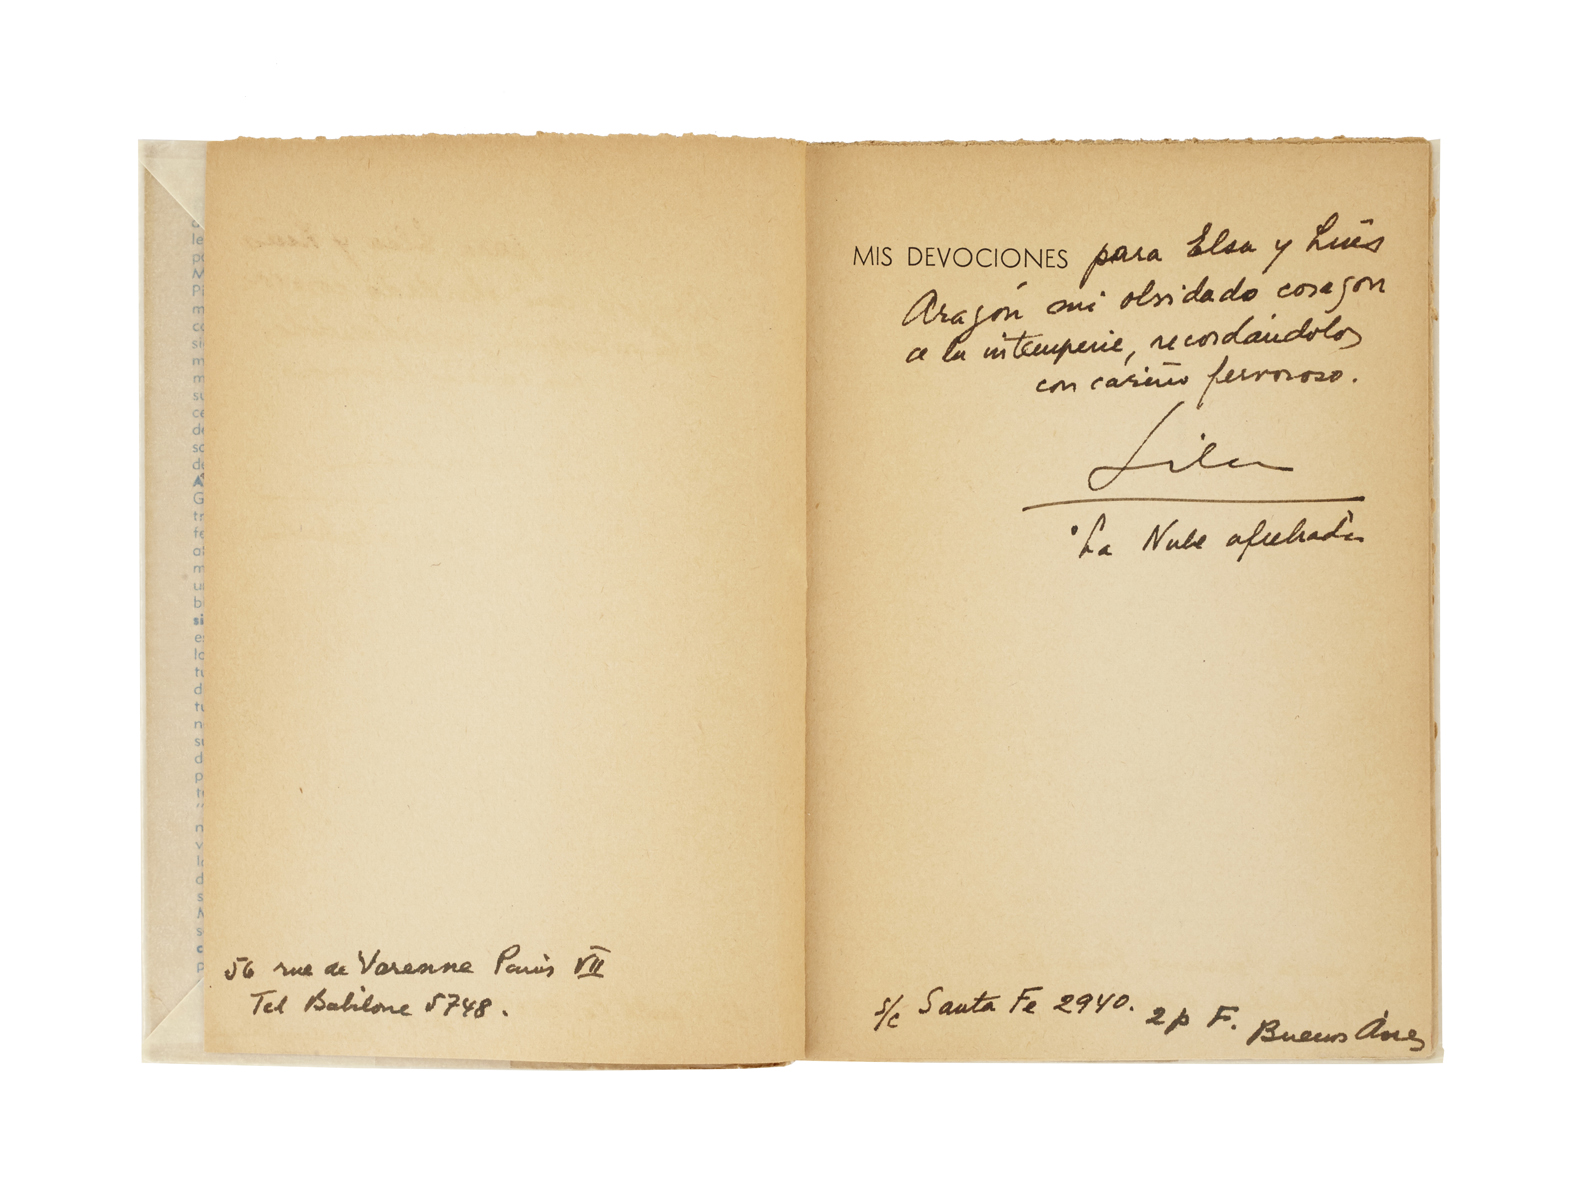 56 rue de Varenne Paris VII
Tel Babilone 5748.
MIS DEVOCIONES para Elsa y Luis
Aragón mi olvidado corazon
a la intemperie, recordándolos
con cariño fervoroso.
La Nube
s/c Santa Fe 2940. 2p F. Buenos Aires